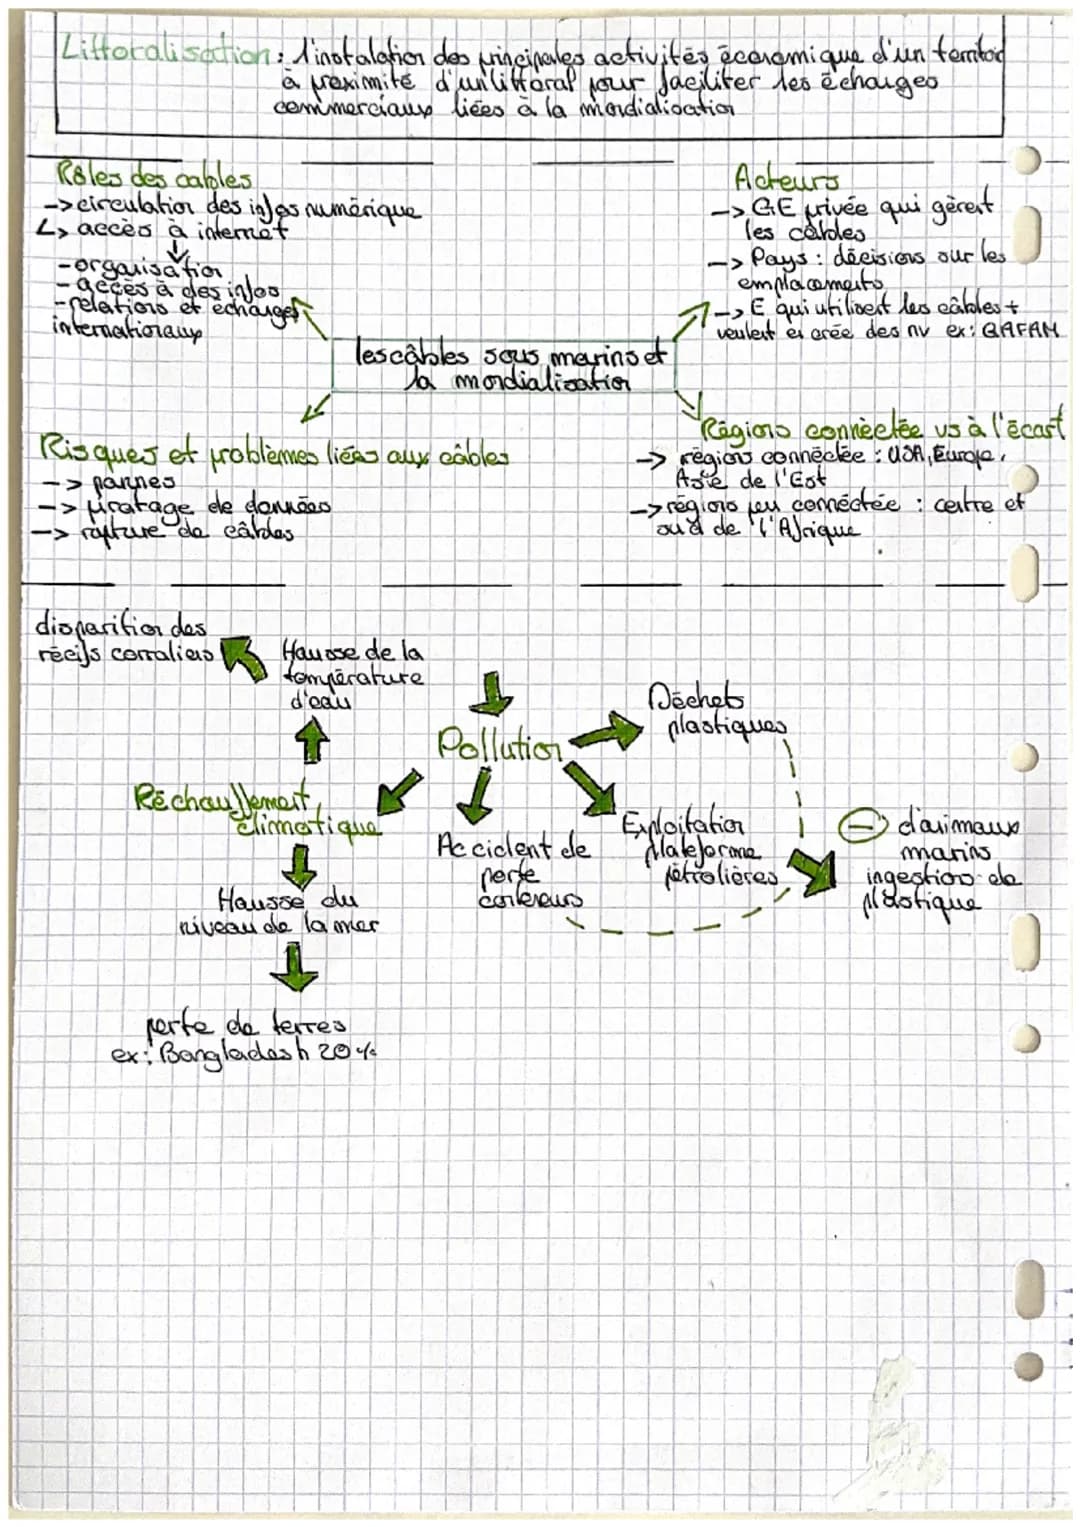 Littoralisation : l'instalation des principales activités économique d'un territoi
à proximité d'un littoral pour faciliter les échanges
commerciaux liées à la mondialisation
Rôles des cables
-> circulation des infos numérique
↳ accès à internet
- organisation
- accès à des infos
- relations et échanges
internationaux
Acteurs
-> GE privée qui gèrent
les câbles
-> Pays : décisions sur les
emplacements
-> E qui utilisent les câbles +
veulent en crée des nv ex : GAFAM
les câbles sous marins et
la mondialisation
Risques et problèmes liées aux câbles
-> pannes
-> piratage de données
-> rupture de câbles
Régions connectée vs à l'écart
-> régions connectée : USA, Europe,
Asie de l'Est
-> régions peu connectée : centre et
sud de l'Afrique
disparition des
récifs corraliens
Hausse de la
température
d'eau
Pollution
Déchets
plastiques
Réchauffement
climatique
Accident de
perte
conteneurs
Exploitation
plateforme
pétrolières
- d'animaux
marins
ingestion de
plastique
Hausse du
niveau de la mer
perte de terres
ex : Bangladesh 20%